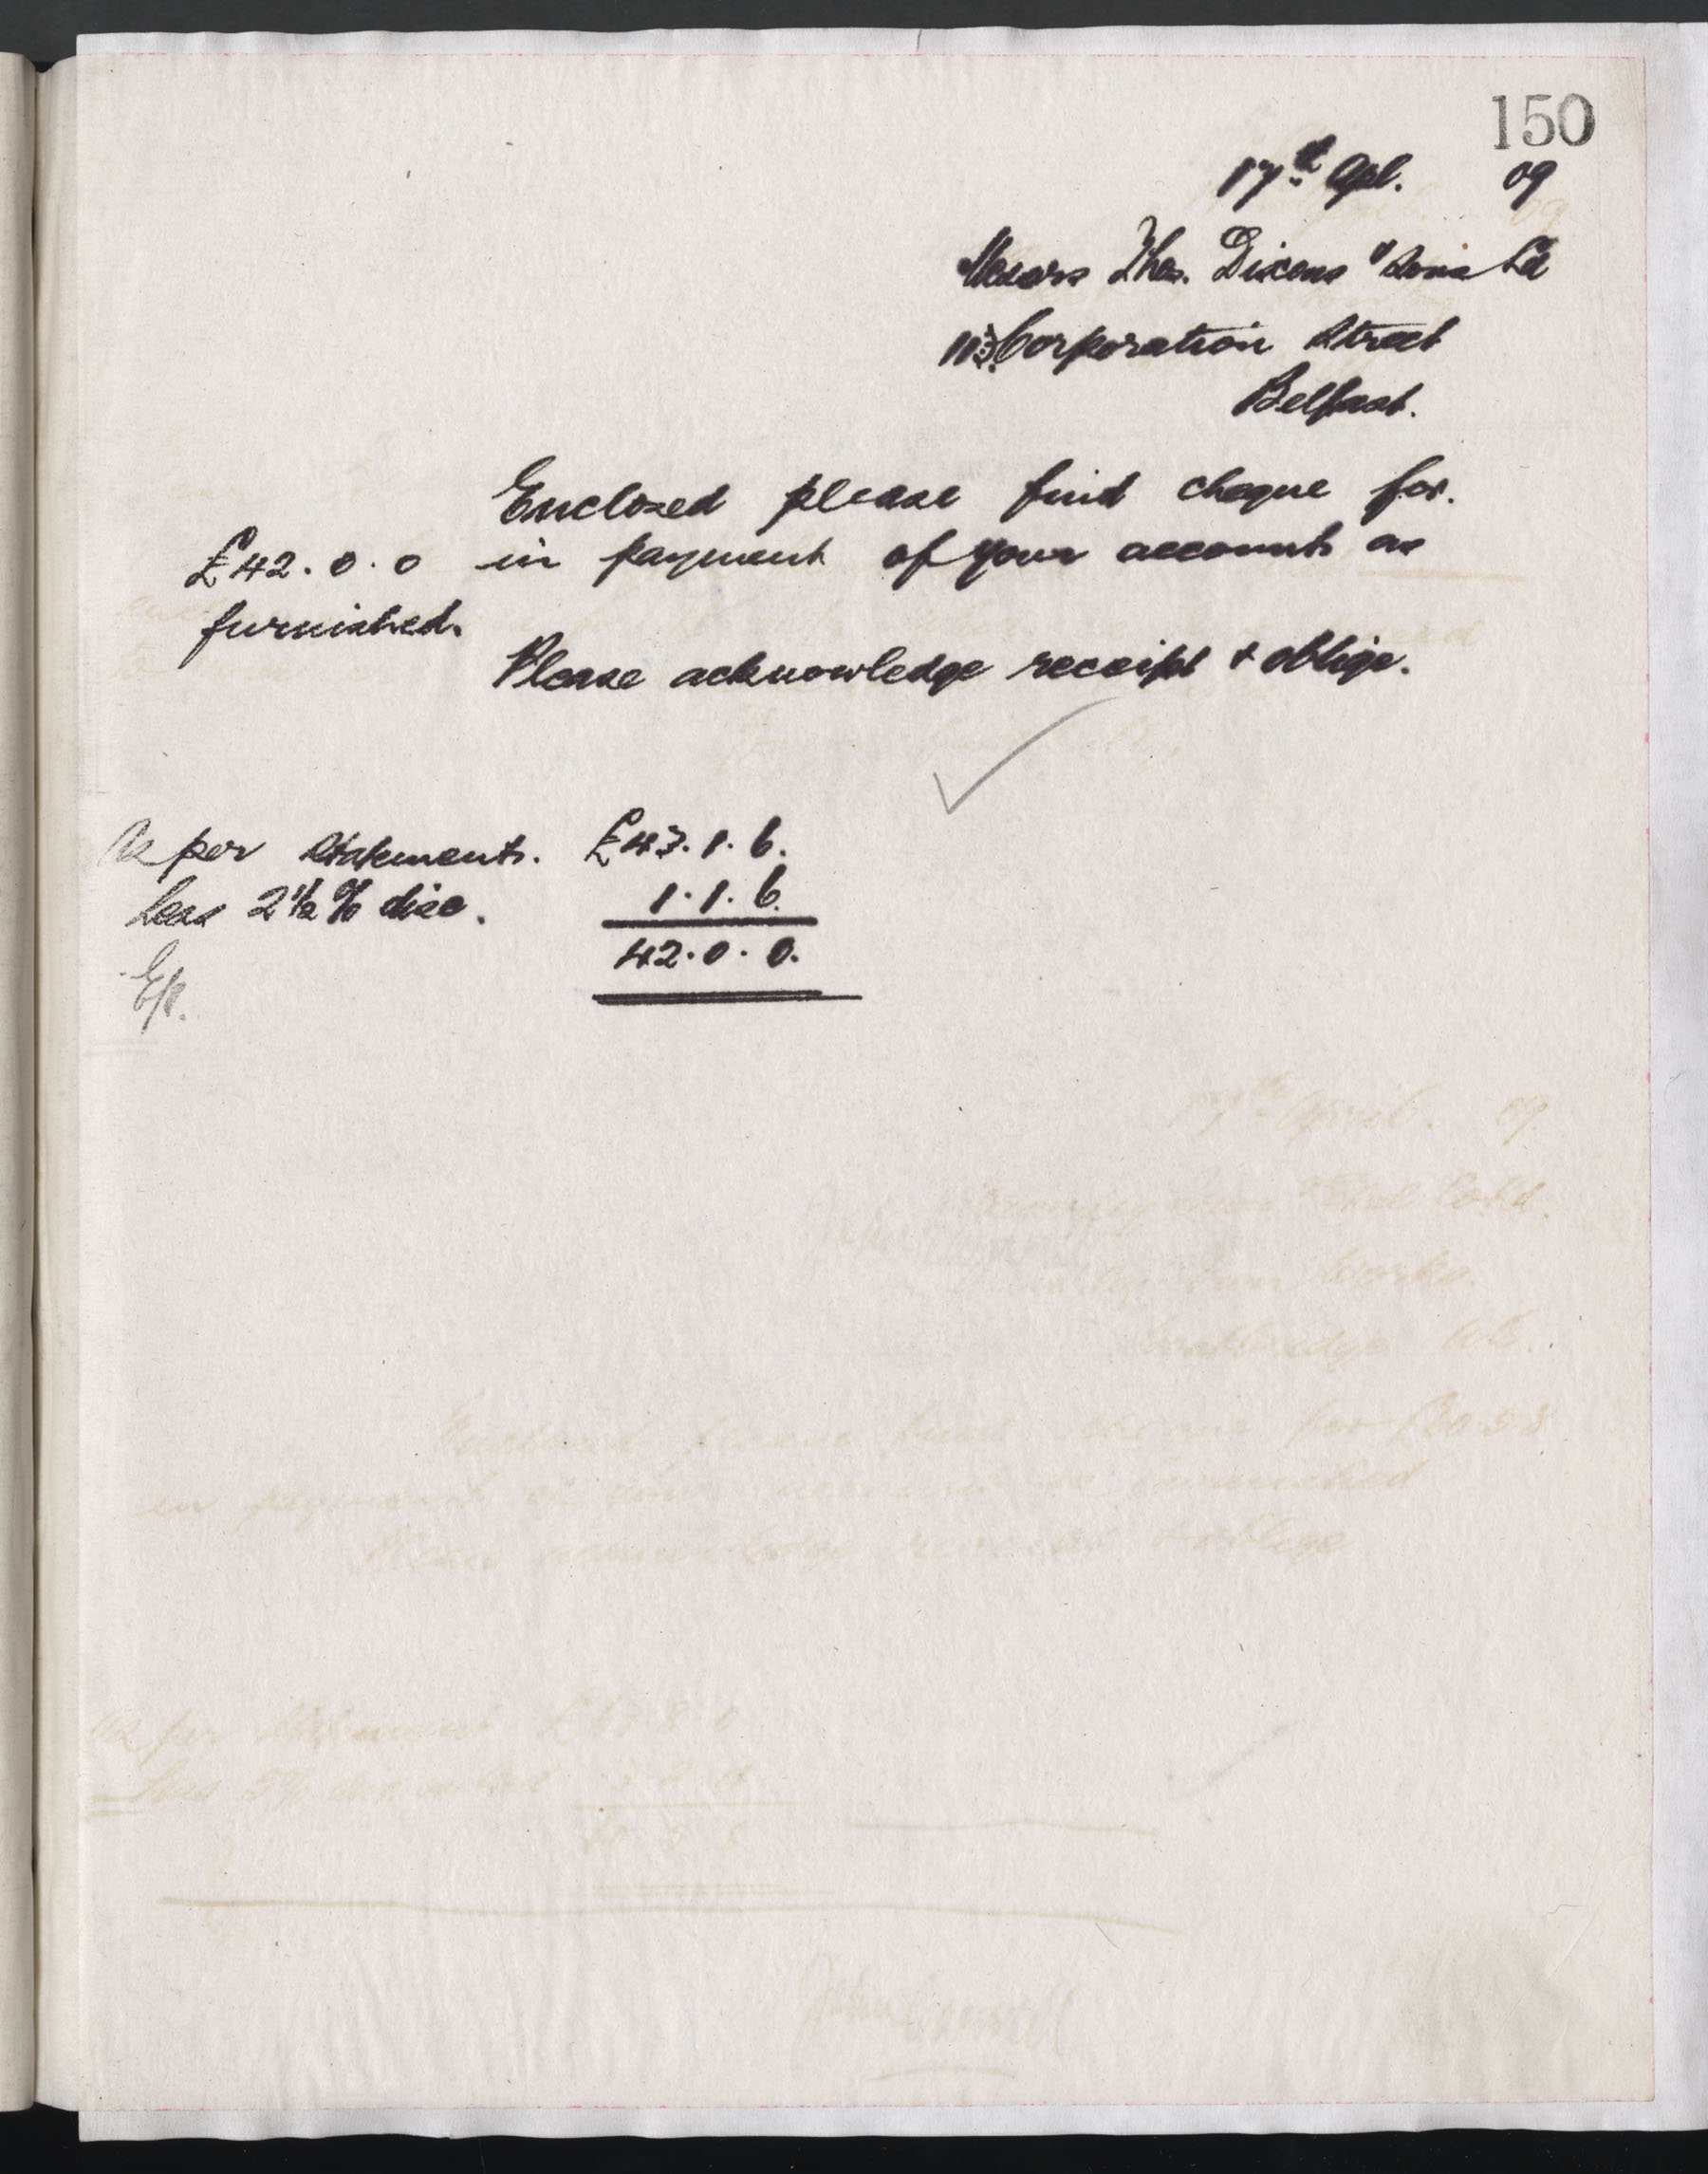 150
17th Apl. 09
Messrs Thos. Dixons & Sons Ld
113 Corporation Street
Belfast.
Enclosed please find cheque for
£42.0.0 in payment of your accounts as
furnished.
Please acknowledge receipt & oblige.
As per Statements. £43.1.6.
Less 2½% disc. 1.1.6.
42.0.0.
17th April. 09
Iron Works
Enclosed please find cheque for
in payment of your account as furnished
Please acknowledge receipt & oblige
As per Statement